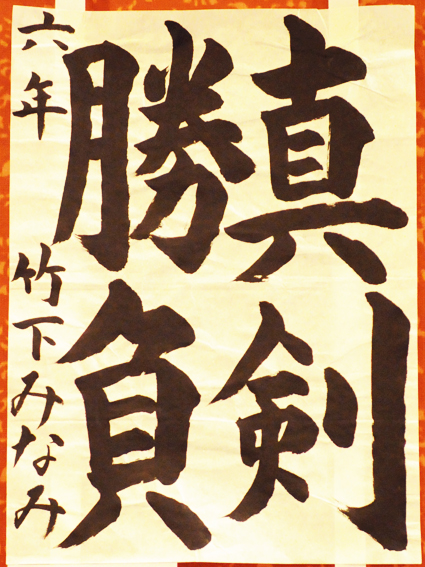 真剣
勝負
六年 竹下みなみ